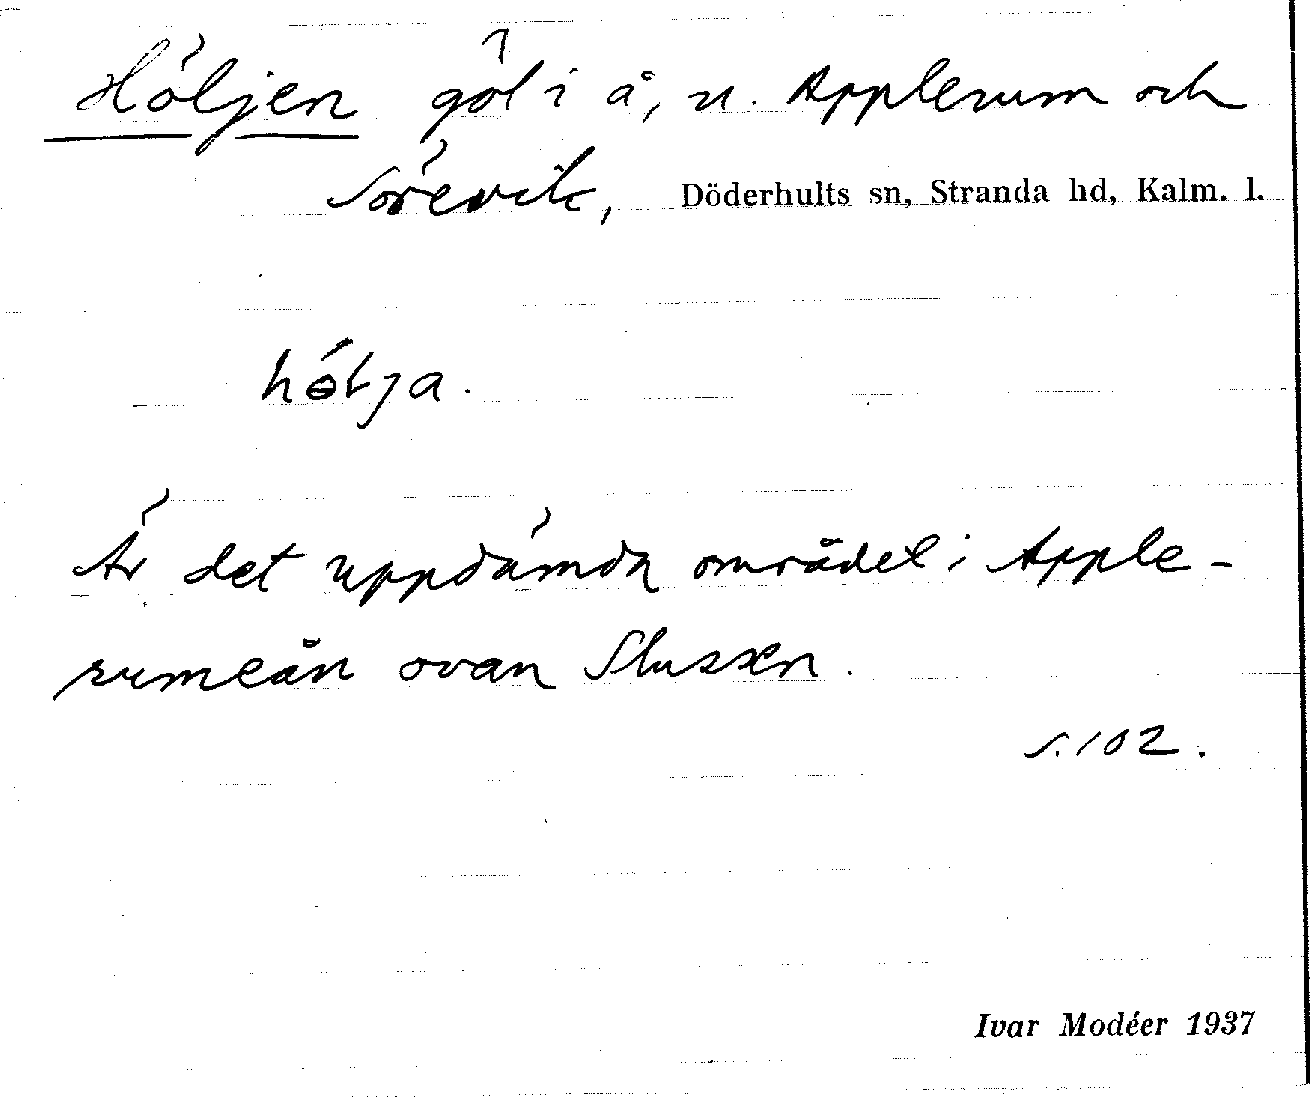 Höljen göl i å, n. Applerum och
Sörevik, Döderhults sn, Stranda hd, Kalm. l.
hɵ́lja.
Är det uppdämda området i Apple-
rumeån ovan Slussen.
s. 102.
Ivar Modéer 1937